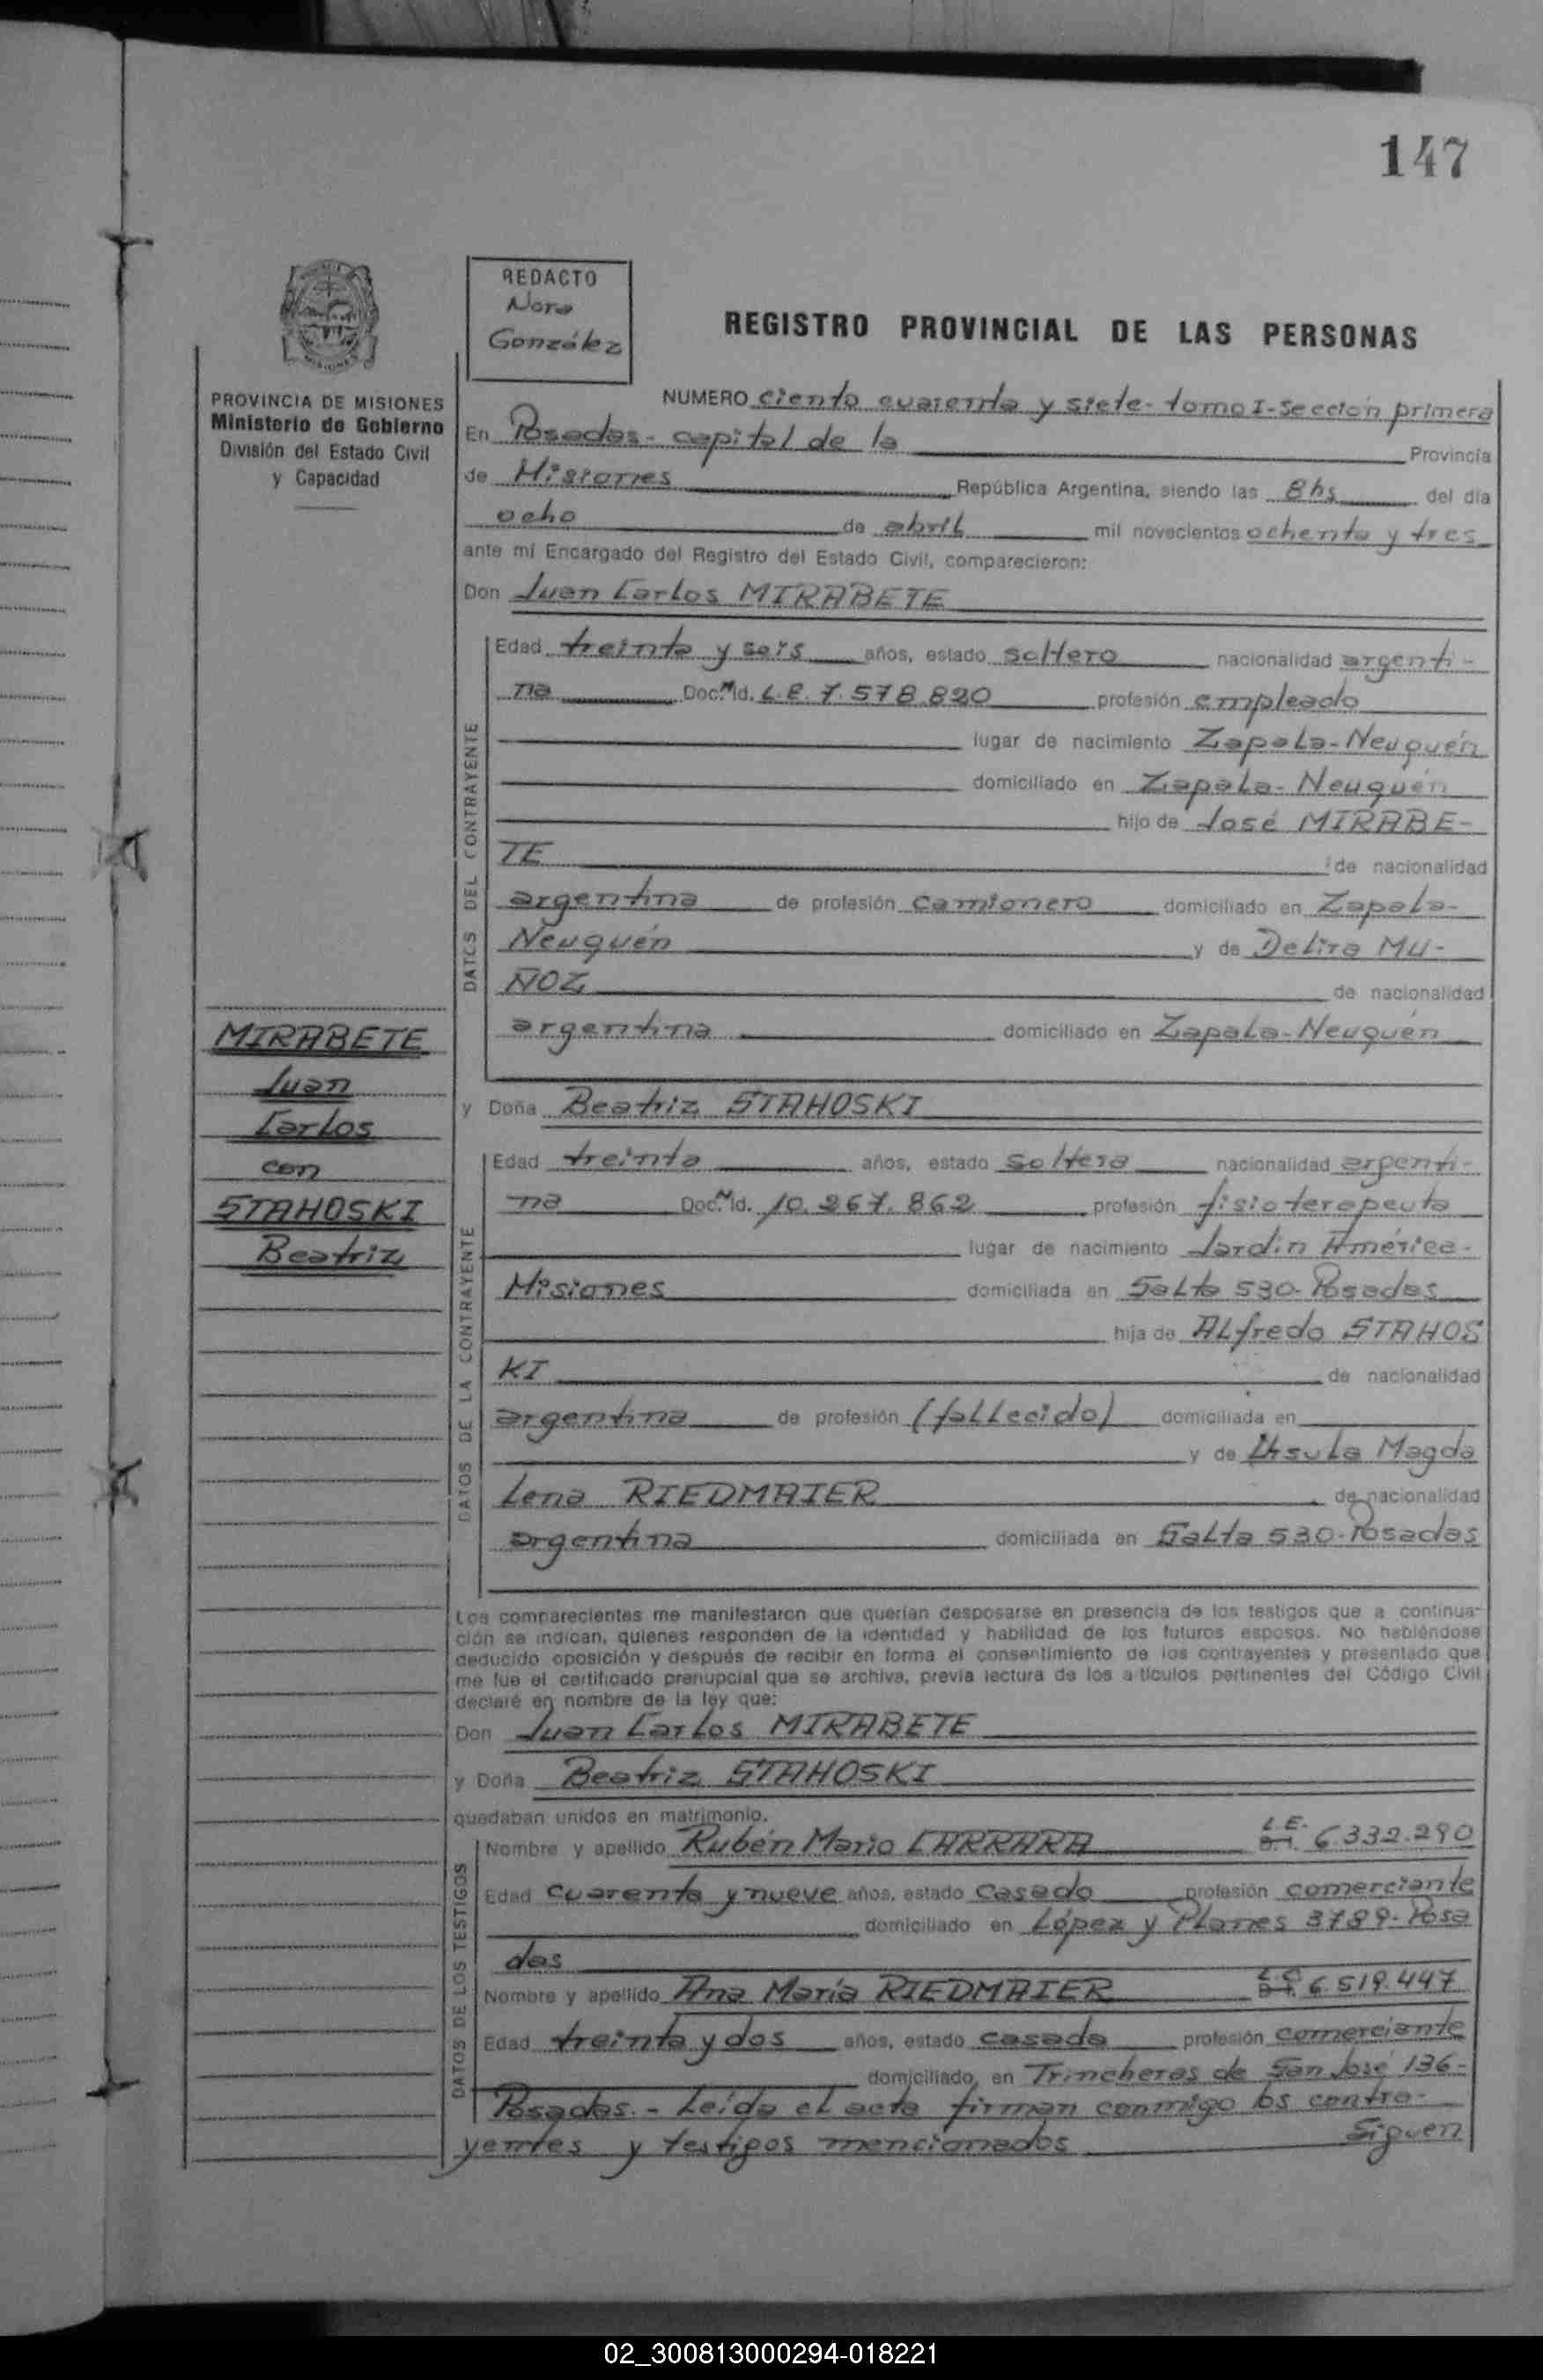 147
REDACTO
Nora
González
REGISTRO PROVINCIAL DE LAS PERSONAS
PROVINCIA DE MISIONES
Ministerio de Gobierno
División del Estado Civil
y Capacidad
NUMERO ciento cuarenta y siete- tomo I- Sección primera
En Posadas- capital de la Provincia
de Misiones República Argentina, siendo las 8hs del día
ocho de abril mil novecientos ochenta y tres
ante mí Encargado del Registro del Estado Civil, comparecieron:
Don Juan Carlos MIRABETE
DATOS DEL CONTRAYENTE
Edad treinta y seis años, estado soltero nacionalidad argenti-
na Doc. Nº Id. L.E. 7.578.820 profesión empleado
lugar de nacimiento Zapala-Neuquén
domiciliado en Zapala- Neuquén
hijo de José MIRABE-
TE de nacionalidad
argentina de profesión camionero domiciliado en Zapala-
Neuquén y de Delira MU-
ÑOZ de nacionalidad
argentina domiciliado en Zapala-Neuquén
MIRABETE
Juan
Carlos
con
STAHOSKI
Beatriz
y Doña Beatriz STAHOSKI
DATOS DE LA CONTRAYENTE
Edad treinta años, estado soltera nacionalidad argenti-
na Doc. Nº Id. 10.267.862 profesión fisioterapeuta
lugar de nacimiento Jardín América-
Misiones domiciliada en Salta 530- Posadas
hija de Alfredo STAHOS
KI de nacionalidad
argentina de profesión (fallecido) domiciliada en
y de Ursula Magda
Lena RIEDMAIER de nacionalidad
argentina domiciliada en Salta 530-Posadas
Los comparecientes me manifestaron que querían desposarse en presencia de los testigos que a continua-
ción se indican, quienes responden de la identidad y habilidad de los futuros esposos. No habiéndose
deducido oposición y después de recibir en forma el consentimiento de los contrayentes y presentado que
me fue el certificado prenupcial que se archiva, previa lectura de los a tículos pertinentes del Código Civil
declaré en nombre de la ley que:
Don Juan Carlos MIRABETE
y Doña Beatriz STAHOSKI
quedaban unidos en matrimonio.
DATOS DE LOS TESTIGOS
Nombre y apellido Rubén Mario CARRARA L.E. 6.332.290
Edad cuarenta y nueve años, estado casado profesión comerciante
domiciliado en López y Planes 3789- Posa
das
Nombre y apellido Ana María RIEDMAIER L.C. 6.519.447
Edad treinta y dos años, estado casada profesión comerciante
domiciliado en Trincheras de San José 136-
Posadas.- Leída el acta firman conmigo los contra-
yentes y testigos mencionados Siguen
02_300813000294-018221